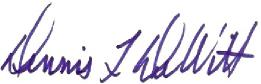 Dennis L DeWitt